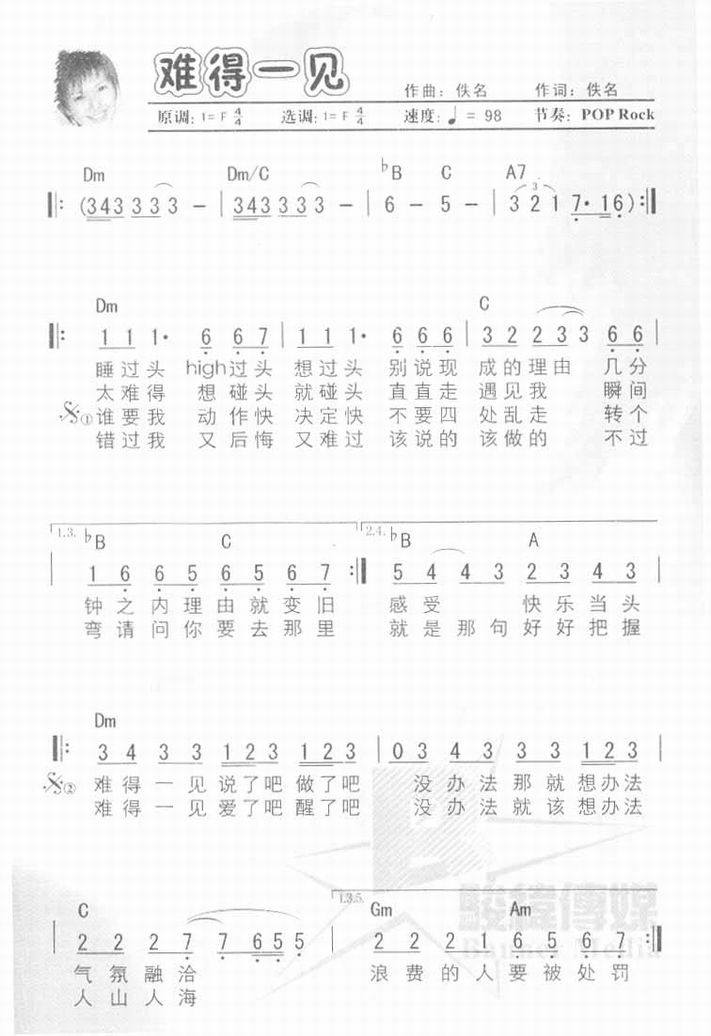 难得一见
作曲：佚名 作词：佚名
原调：1=F 4/4 选调：1=F 4/4 速度：♩=98 节奏：POP Rock
Dm Dm/C ♭B C A7
‖:(343 333 3 - | 343 333 3 - | 6 - 5 - | 3 2 1 7· 16):‖
Dm C
‖: 1 1 1· 6 6 7 | 1 1 1· 6 6 6 | 3 2 2 3 3 6 6 |
睡过头 high过头 想过头 别说现 成的理由 几分
太难得 想碰头 就碰头 直直走 遇见我 瞬间
① 谁要我 动作快 决定快 不要四 处乱走 转个
错过我 又后悔 又难过 该说的 该做的 不过
1.3. ♭B C 2.4. ♭B A
| 1 6 6 5 6 5 6 7 :‖ 5 4 4 3 2 3 4 3 |
钟之内理由就变旧 感受 快乐当头
弯请问你要去那里 就是那句好好把握
Dm
‖: 3 4 3 3 1 2 3 1 2 3 | 0 3 4 3 3 3 1 2 3 |
② 难得一见说了吧做了吧 没办法那就想办法
难得一见爱了吧醒了吧 没办法就该想办法
C 1.3.5. Gm Am
2 2 2 7 7 6 5 5 | 2 2 2 1 6 5 6 7 :‖
气氛融洽 浪费的人要被处罚
人山人海
駿緯傳媒
Banner Media